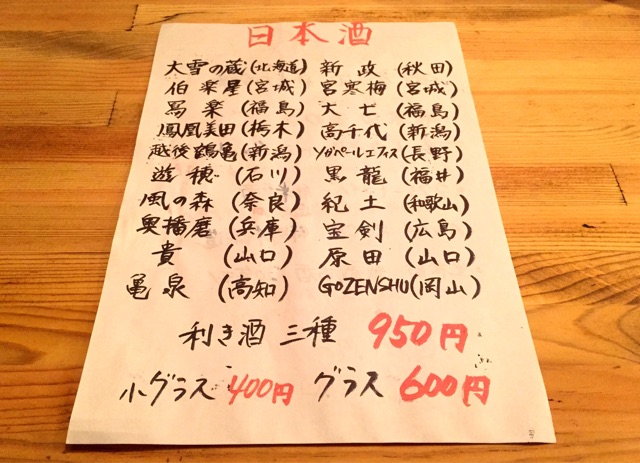 日本酒
大雪の蔵(北海道) 新政(秋田)
伯楽星(宮城) 宮寒梅(宮城)
写楽(福島) 大七(福島)
鳳凰美田(栃木) 高千代(新潟)
越後鶴亀(新潟) ソガペールエフィス(長野)
遊穂(石川) 黒龍(福井)
風の森(奈良) 紀土(和歌山)
奥播磨(兵庫) 宝剣(広島)
貴(山口) 原田(山口)
亀泉(高知) GOZENSHU(岡山)
利き酒 三種 950円
小グラス 400円 グラス 600円